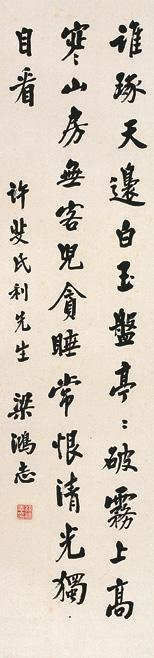 誰琢天邊白玉盤亭〻破霧上高
寒山房無客兒貪睡常恨清光獨
自看
許斐氏利先生 梁鴻志